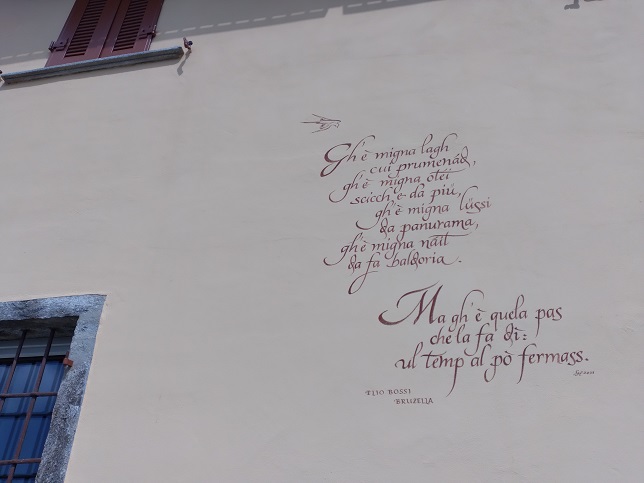 Gh'è migna lagh
cui prumenád,
gh'è migna otéi
scicch e da piü,
gh'è migna lüssi
da panurama,
gh'è migna nait
da fa baldoria.
Ma gh'è quela pas
che la fa dì:
ul temp al pò fermass.
ELIO BOSSI
BRUZELLA